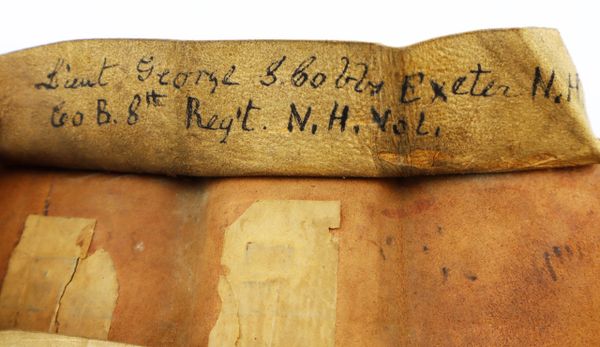 Lieut George S. Cobbs Exeter N.H
Co B. 8th Reg't. N.H. Vol.